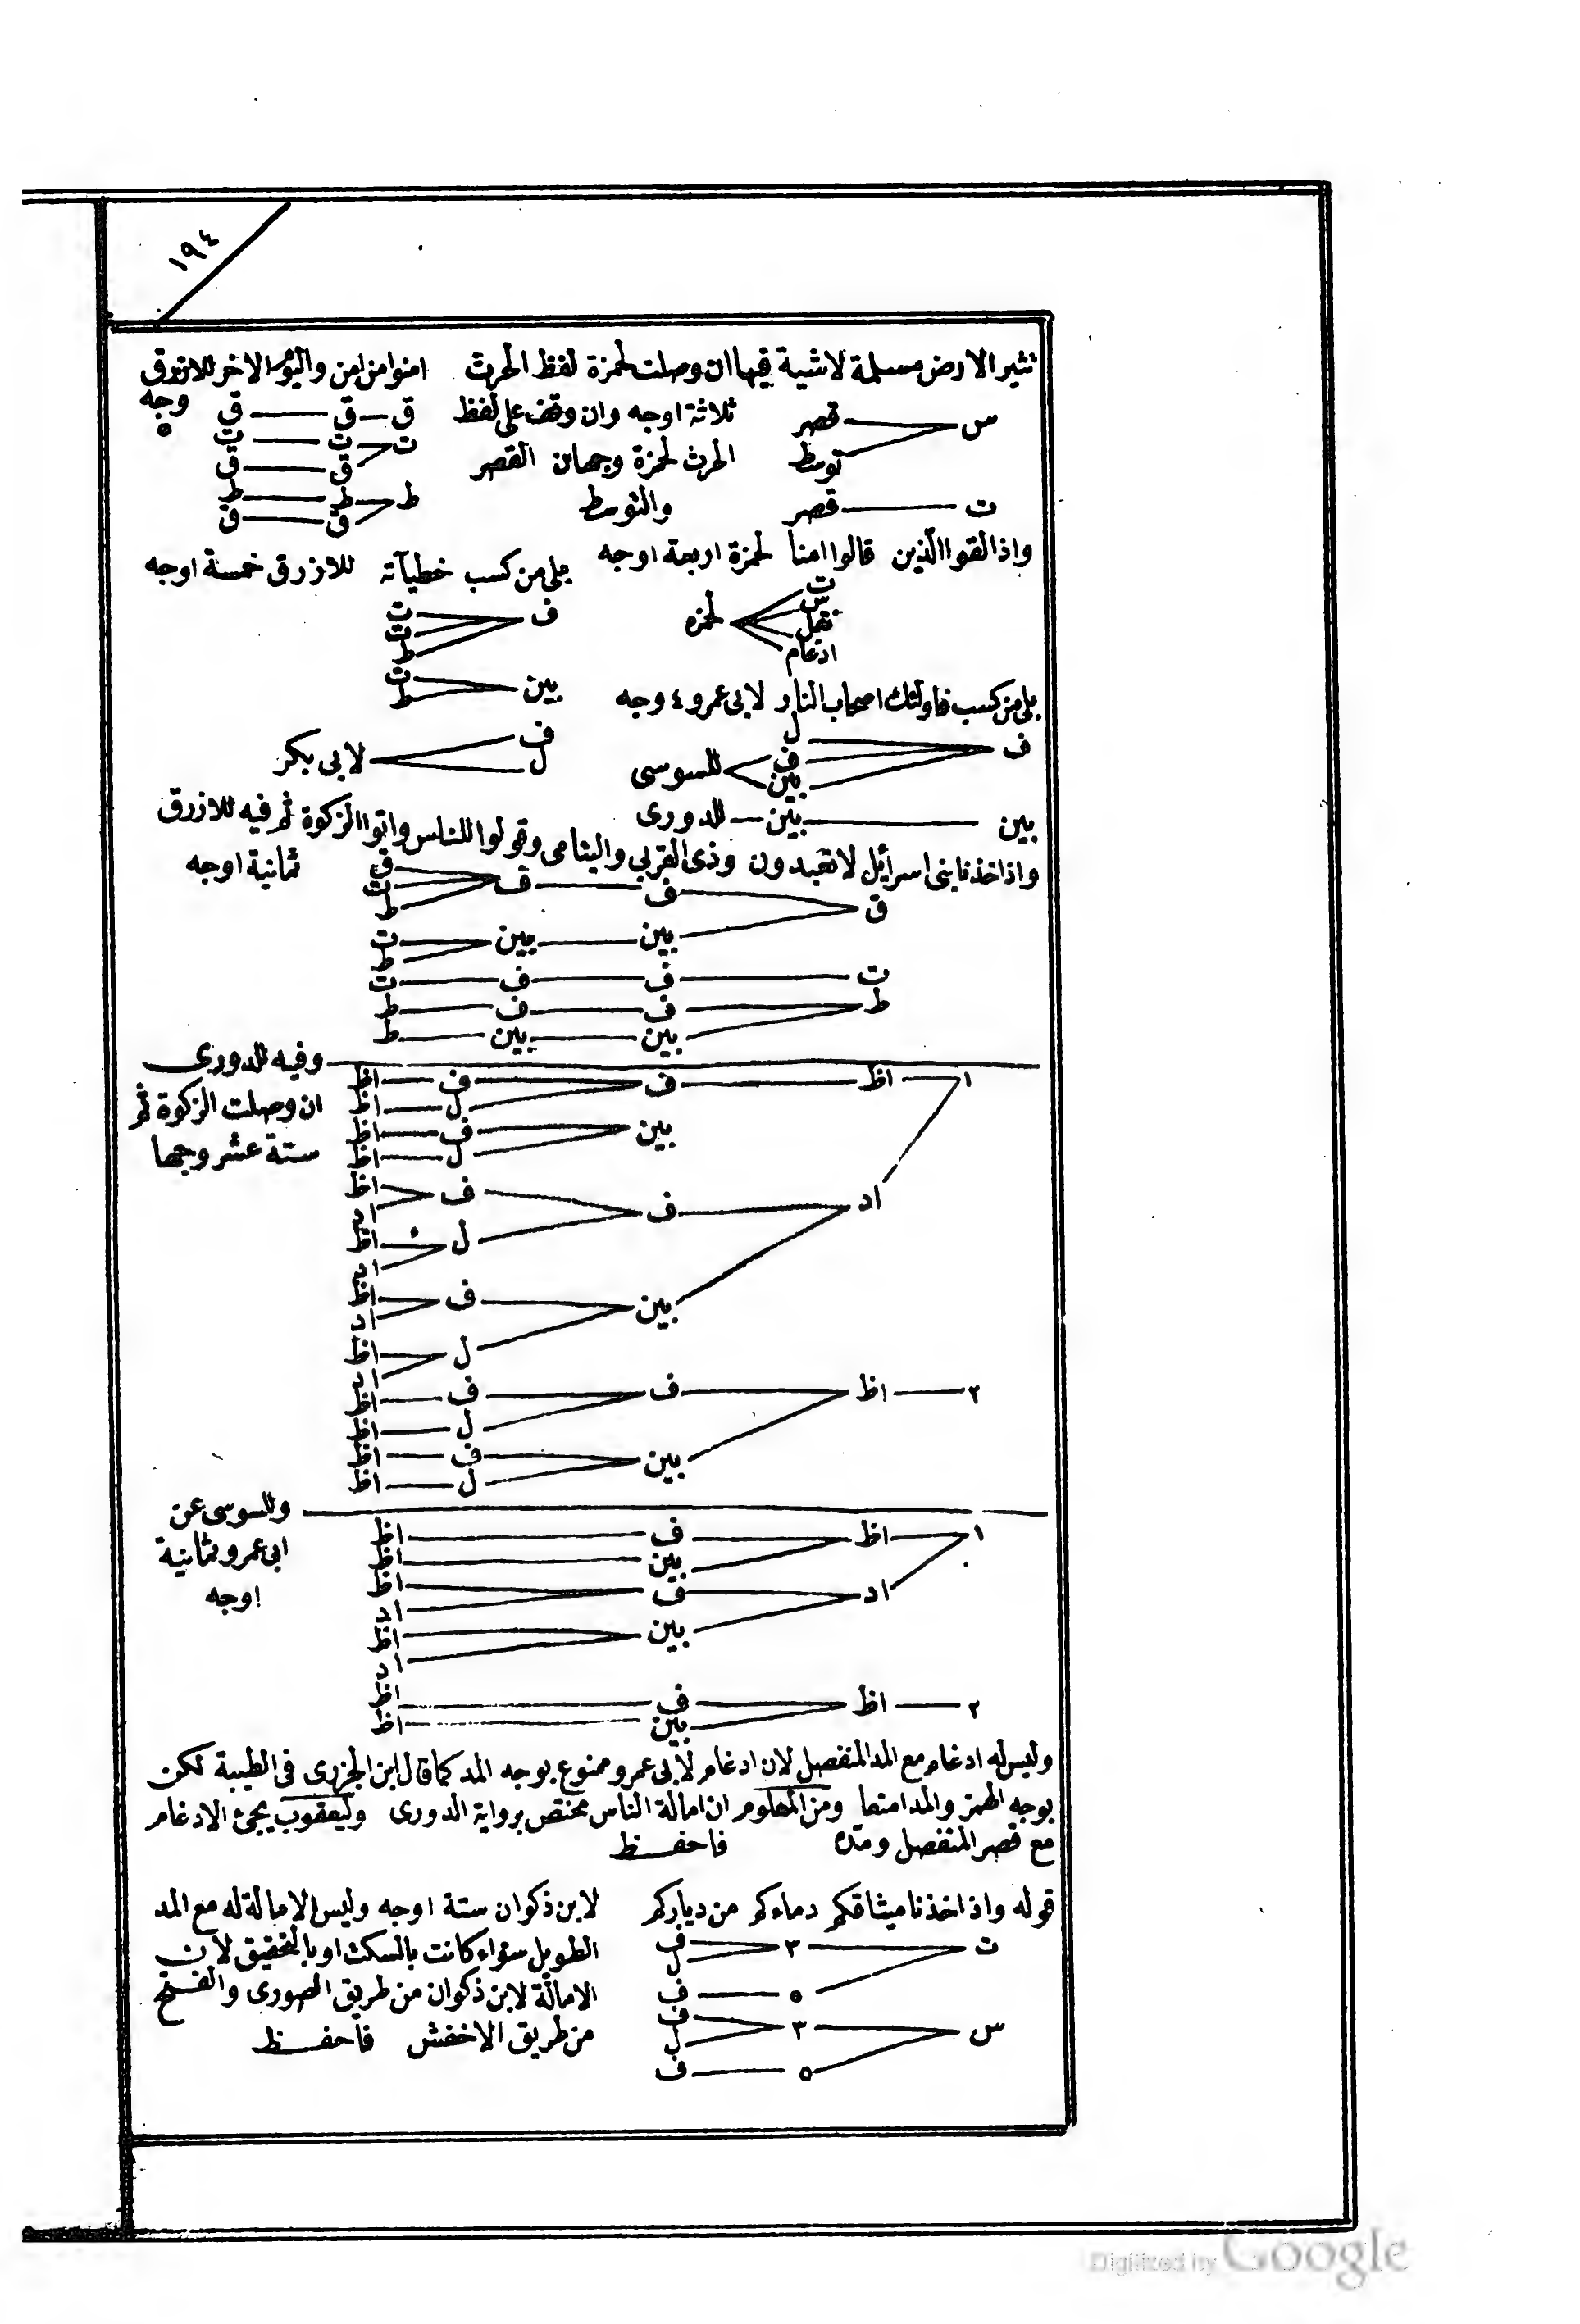 ١٩٤
تثير الارض مسلمة لاشية فيها ان وصلت لحمزة لفظ الحرث
س قصر
توسط
ت قصر
ثلاثة اوجه وان وقف على لفظ
الحرث لحمزة وجهان القصر
والتوسط
امنوا من امن واليوم الاخر للازرق
وجه ٥
ق ق ق
ت ت ت
ق ق
ط ط ط
ق ق
واذا لقوا الذين قالوا امنا لحمزة اربعة اوجه
لحمزه
ت
س
نقل
ادغام
بلى من كسب خطيآته للازرق خمسة اوجه
ف ت
ت
ط
بين ت
ط
بلى من كسب فاولئك اصحاب النار لابى عمرو ٤ وجه
ف ل
ف
بين
للسوسى
بين بين للدورى
ف
ل
لابى بكر
واذ اخذنا بنى اسرائيل لا تعبدون وذى القربى واليتامى وقولوا للناس واتوا الزكوة ثم فيه للازرق
ثمانية اوجه
ق ف ف ق
ت
ط
بين بين ت
ط
ت ف ف ت
ط ف ف ط
بين بين ط
وفيه للدورى
ان وصلت الزكوة ثم
ستة عشر وجها
١ اظ ف ف اظ
ل اظ
بين ف اظ
ل اظ
اد ف ف اظ
اد
ل اظ
اد
بين ف اظ
اد
ل اظ
اد
٢ اظ ف ف اظ
ل اظ
بين ف اظ
ل اظ
وللسوسى عن
ابى عمرو ثمانية
اوجه
١ اظ ف اظ
بين اظ
اد ف اظ
اد
بين اظ
اد
٢ اظ ف اظ
بين اظ
وليس له ادغام مع المد المنفصل لان ادغام لابى عمرو ممنوع بوجه المد كما قال ابن الجزرى فى الطيبة لكن
بوجه الهمز والمد امنعا ومن المعلوم ان امالة الناس مختص برواية الدورى وليعقوب يجئ الادغام
مع قصر المنفصل ومده فاحفظ
قوله واذ اخذنا ميثاقكم دماءكم من دياركم
ت ٣ ف
ل
٥ ف
س ٣ ف
ل
٥ ف
لابن ذكوان ستة اوجه وليس الامالة له مع المد
الطويل سواء كانت بالسكت او بالتحقيق لان
الامالة لابن ذكوان من طريق الصورى والفتح
من طريق الاخفش فاحفظ
Digitized by Google